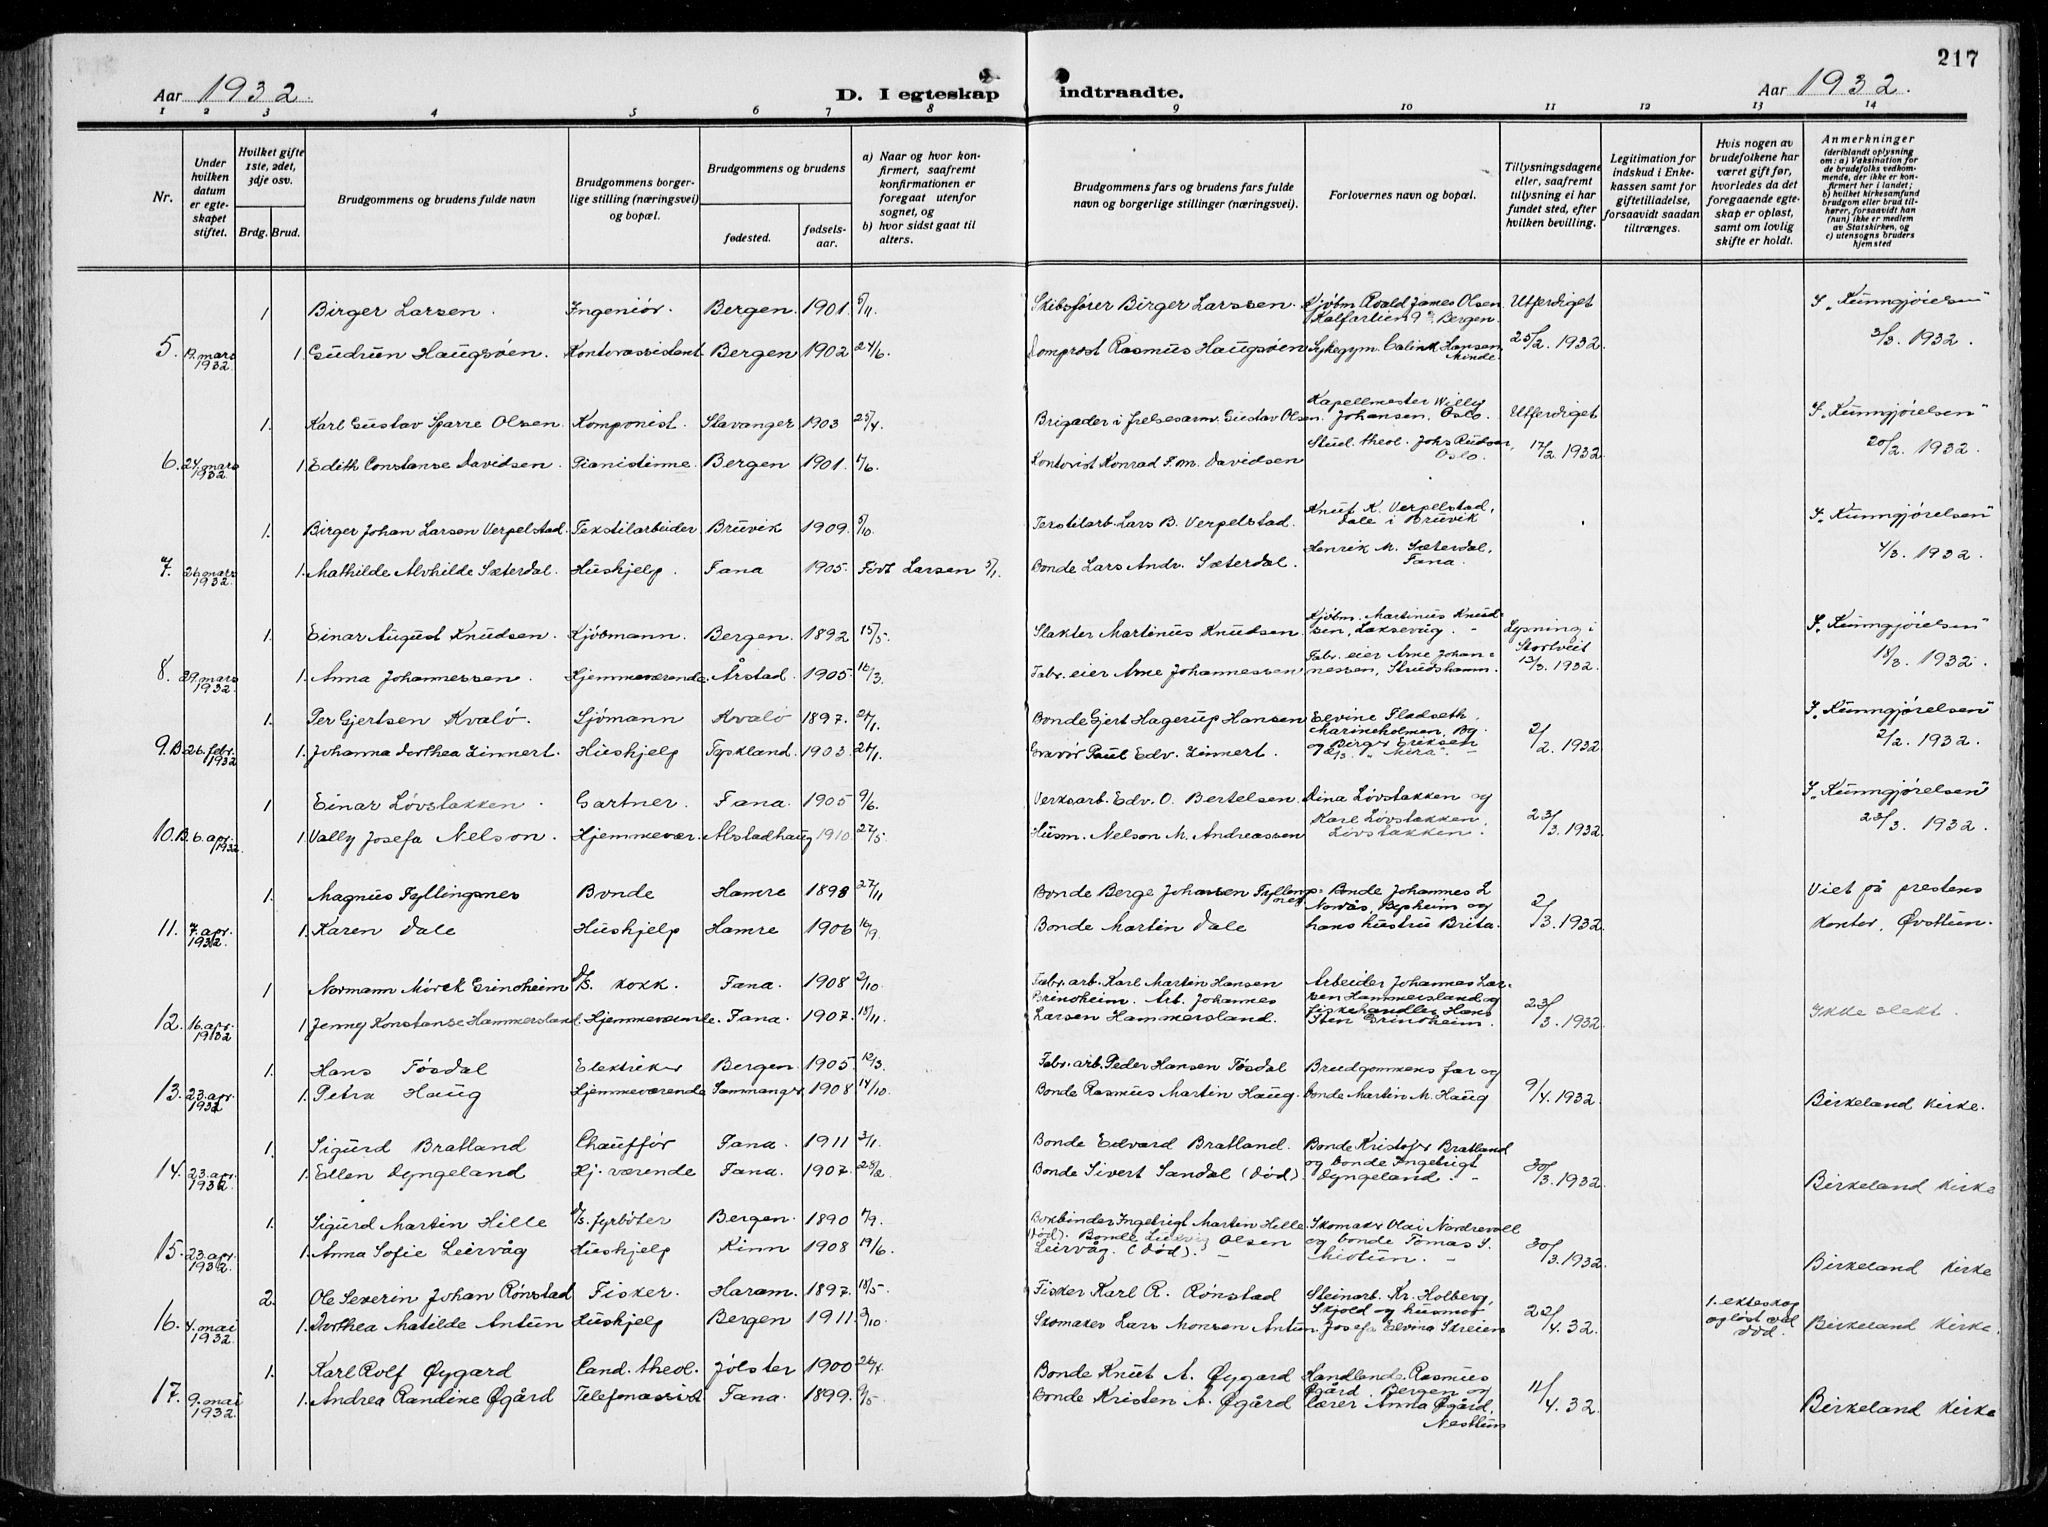 217
Aar 1932.
D. I egteskap indtraadte.
Aar 1932.
1 2 3 4 5 6 7 8 9 10 11 12 13 14
Nr.
Under hvilken datum er egteskapet stiftet.
Hvilket gifte 1ste, 2det, 3dje osv.
Brdg. Brud.
Brudgommens og brudens fulde navn
Brudgommens borgerlige stilling (næringsvei) og bopæl.
Brudgommens og brudens
fødested.
fødselsaar.
a) Naar og hvor konfirmert, saafremt konfirmationen er foregaat utenfor sognet, og
b) hvor sidst gaat til alters.
Brudgommens fars og brudens fars fulde navn og borgerlige stillinger (næringsvei).
Forlovernes navn og bopæl.
Tillysningsdagene eller, saafremt tillysning ei har fundet sted, efter hvilken bevilling.
Legitimation for indskud i Enkekassen samt for giftetilladelse, forsaavidt saadan tiltrænges.
Hvis nogen av brudefolkene har været gift før, hvorledes da det foregaaende egteskap er opløst, samt om lovlig skifte er holdt.
Anmerkninger (deriblandt oplysning om: a) Vaksination for de brudefolks vedkommende, der ikke er konfirmert her i landet; b) hvilket kirkesamfund brudgom eller brud tilhører, forsaavidt han (hun) ikke er medlem av Statskirken, og c) utensogns bruders hjemsted
1 Birger Larsen. Ingeniör. Bergen. 1901. 5/11. Skibsfører Birger Larssen. Kjöbm. Roald James Olsen Kalfarlien 9 Bergen. Utferdiget I „Kunngjörelsen"
5. 19. mars 1932. 1. Gudrun Haugsøen. Kontorassistent. Bergen 1902 24/6. Domprost Rasmus Haugsøen Sykegym. Hansen Minde 25/2. 1932. 3/3. 1932.
1. Karl Gustav Sparre Olsen. Komponist. Stavanger 1903 25/4. Brigader i frelsesarm. Gustav Olsen. Kapellmester Willy Johansen, Oslo. Utferdiget I „Kunngjörelsen"
6. 24. mars 1932. 1. Edith Constanse Davidsen. Pianistinne. Bergen 1901. Kontorist Konrad F. M. Davidsen Stud. theol. Johs Oslo. 17/2. 1932. 20/2. 1932.
1. Birger Johan Larsen Verpelstad. Tekstilarbeider Bruvik 1909. 5/10. Terstilarb. Lars B. Verpelstad. Knut K. Verpelstad, Dale i Bruvik I „Kunngjörelsen"
7. 26. mars 1932. 1. Mathilde Alvhilde Sæterdal. Hushjelp. Fana 1905. Född Larsen 5/1. Bonde Lars Andr. Sæterdal. Henrik M. Sæterdal. Fana. 4/3. 1932.
1. Einar August Knudsen. Kjöbmann. Bergen. 1892 15/5. Slakter Martinus Knudsen Kjöbm. Martinus Knudsen, Laksevåg. Lysning i Stortveit I „Kunngjörelsen"
8. 29. mars 1932 1. Anna Johannessen. Hjemmeværende. Årstad. 1905. 16/3. Fabr. eier Arne Johannessen Fabr. eier Arne Johannessen, Strudshamn. 13/3. 1932. 18/3. 1932.
1. Per Gjertsen Kvalö. Sjömann Kvalö 1897. 24/1. Bonde Gjert Hagerup Hansen Elvine Fladseth, Marineholmen, Bg. I „Kunngjörelsen"
9.B 26. febr. 1932 1. Johanna Dorthea Linnert. Hushjelp Tyskland. 1903. 24/1. Gravör Paul Edv. Linnert. og Birger Eriksen D/S. „Mira". 2/2. 1932. 2/2. 1932.
1 Einar Lövstakken. Gartner. Fana. 1905 9/6. Verksarb. Edv. O. Bertelsen. Dina Lövstakken og I „Kunngjörelsen"
10.B. 6. apr. 1932 1. Vally Josefa Nelson. Hjemmevær. Alstadhaug 1910. 27/5. Husm. Nelson M. Andreassen Karl Lövstakken, Lövstakken. 23/3. 1932. 23/3. 1932.
1. Magnus Fyllingsnes Bonde Hamre 1898 27/11 Bonde Berge Johansen Bonde Johannes L Viet på prestens
11. 7. apr. 1932. 1. Karen Dale Hushjelp Hamre 1906 16/9. Bonde Martin Dale Nordås, og hans hustru Brita. 2/3. 1932. kontor, Øvsttun.
1 Normann Mörck Grindheim D/S. kokk. Fana. 1908 2/10. Fabr. arb. Karl Martin Hansen Grindheim. Arbeider Johannes Larsen Hammersland og
12. 16. apr. 1932 1 Jenny Konstanse Hammersland Hjemmeværende. Fana. 1907. 18/11. Arb. Johannes Larsen Hammersland. fiskehandler Hans Sten Grindheim. 23/3. 1932. Ikke slekt.
1. Hans Tösdal Elektriker Bergen 1905. 12/3. Fabr. arb. Peder Hansen Tösdal Brudgommens far og
13. 23. apr. 1932 1. Petra Haug Hjemmeværende Samnanger 1908 14/10. Bonde Rasmus Martin Haug. Bonde Martin M. Haug 9/4. 1932. Birkeland kirke.
1. Sigurd Bratland Chauffør Fana. 1911 3/1. Bonde Edvard Bratland. Bonde Kristofer Bratland
14. 23. apr. 1932 1. Ellen Dyngeland Hj. værende Fana. 1907. 28/2. Bonde Sivert Sandal (död). og bonde Ingebrigt Dyngeland. 30/3. 1932. Birkeland kirke
1. Sigurd Martin Hille D/S. fyrböter Bergen. 1890 Bokbinder Ingebrigt Martin Hille (död). Skomaker Olai Nordrevoll
15. 23. apr. 1932. 1. Anna Sofie Leirvåg Hushjelp Kinn 1908 19/6. Bonde Ludvig Olsen Leirvåg. (död). og bonde Tomas S. Midtun. 30/3. 1932. Birkeland kirke
2. Ole Severin Johan Rönstad Fisker. Haram. 1897. 18/5. Fisker Karl R. Rönstad Steinarb. Kr. Holberg, Skjold og husmor 1. ekteskap opløst ved död.
16. 4. mai 1932 1. Dorthea Matilde Antun Hushjelp Bergen 1911. 2/10. Skomaker Lars Monsen Antun. Josefa Elvina Skreien 22/4. 32. Birkeland kirke.
1. Karl Rolf Øygard Cand. theol. Jölster 1900 26/4. Bonde Knut A. Øygard Handlende Rasmus
17. 9. mai 1932. 1. Andrea Randine Øgård Telefonassist. Fana. 1899. 2/5. Bonde Kristen A. Øgård Øgård. Bergen og lærer Anna Øgård, Nesttun 11/4. 32. Birkeland kirke